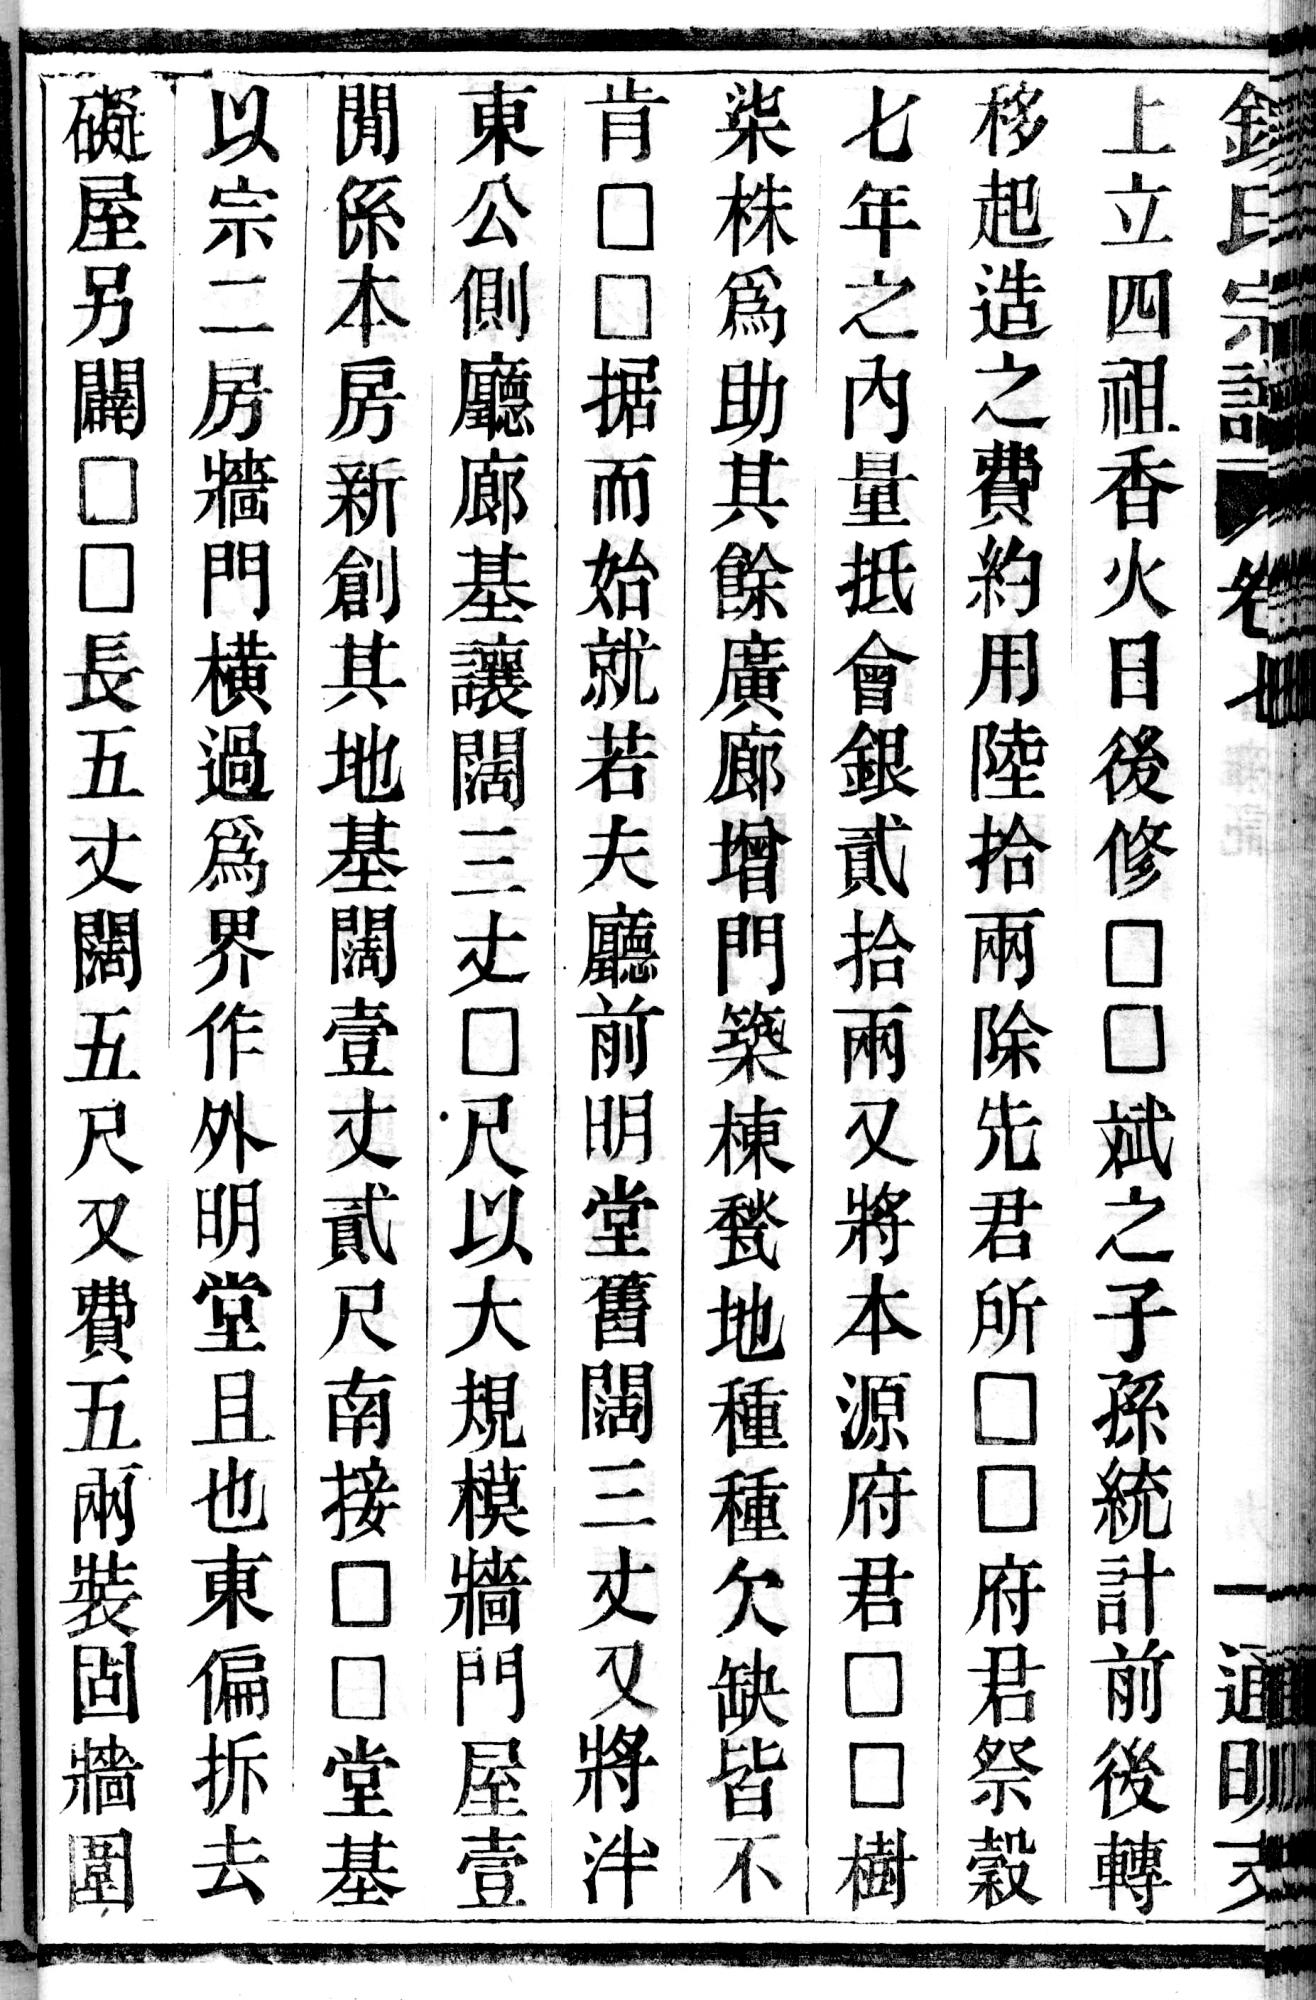 氏宗譜 卷七 一 通明支
上立四祖香火日後修□□斌之子孫統計前後轉
移起造之費約用陸拾兩除先君所□□府君祭穀
七年之內量抵會銀貳拾兩又將本源府君□□樹
柒株爲助其餘廣廊增門築棟甃地種種欠缺皆不
肯□□据而始就若夫廳前明堂舊闊三丈又將泮
東公側廳廊基讓闊三丈□尺以大規模牆門屋壹
閒係本房新創其地基闊壹丈貳尺南接□□堂基
以宗二房牆門橫過爲界作外明堂且也東偏拆去
礙屋另闢□□長五丈闊五尺又費五兩裝固牆圍